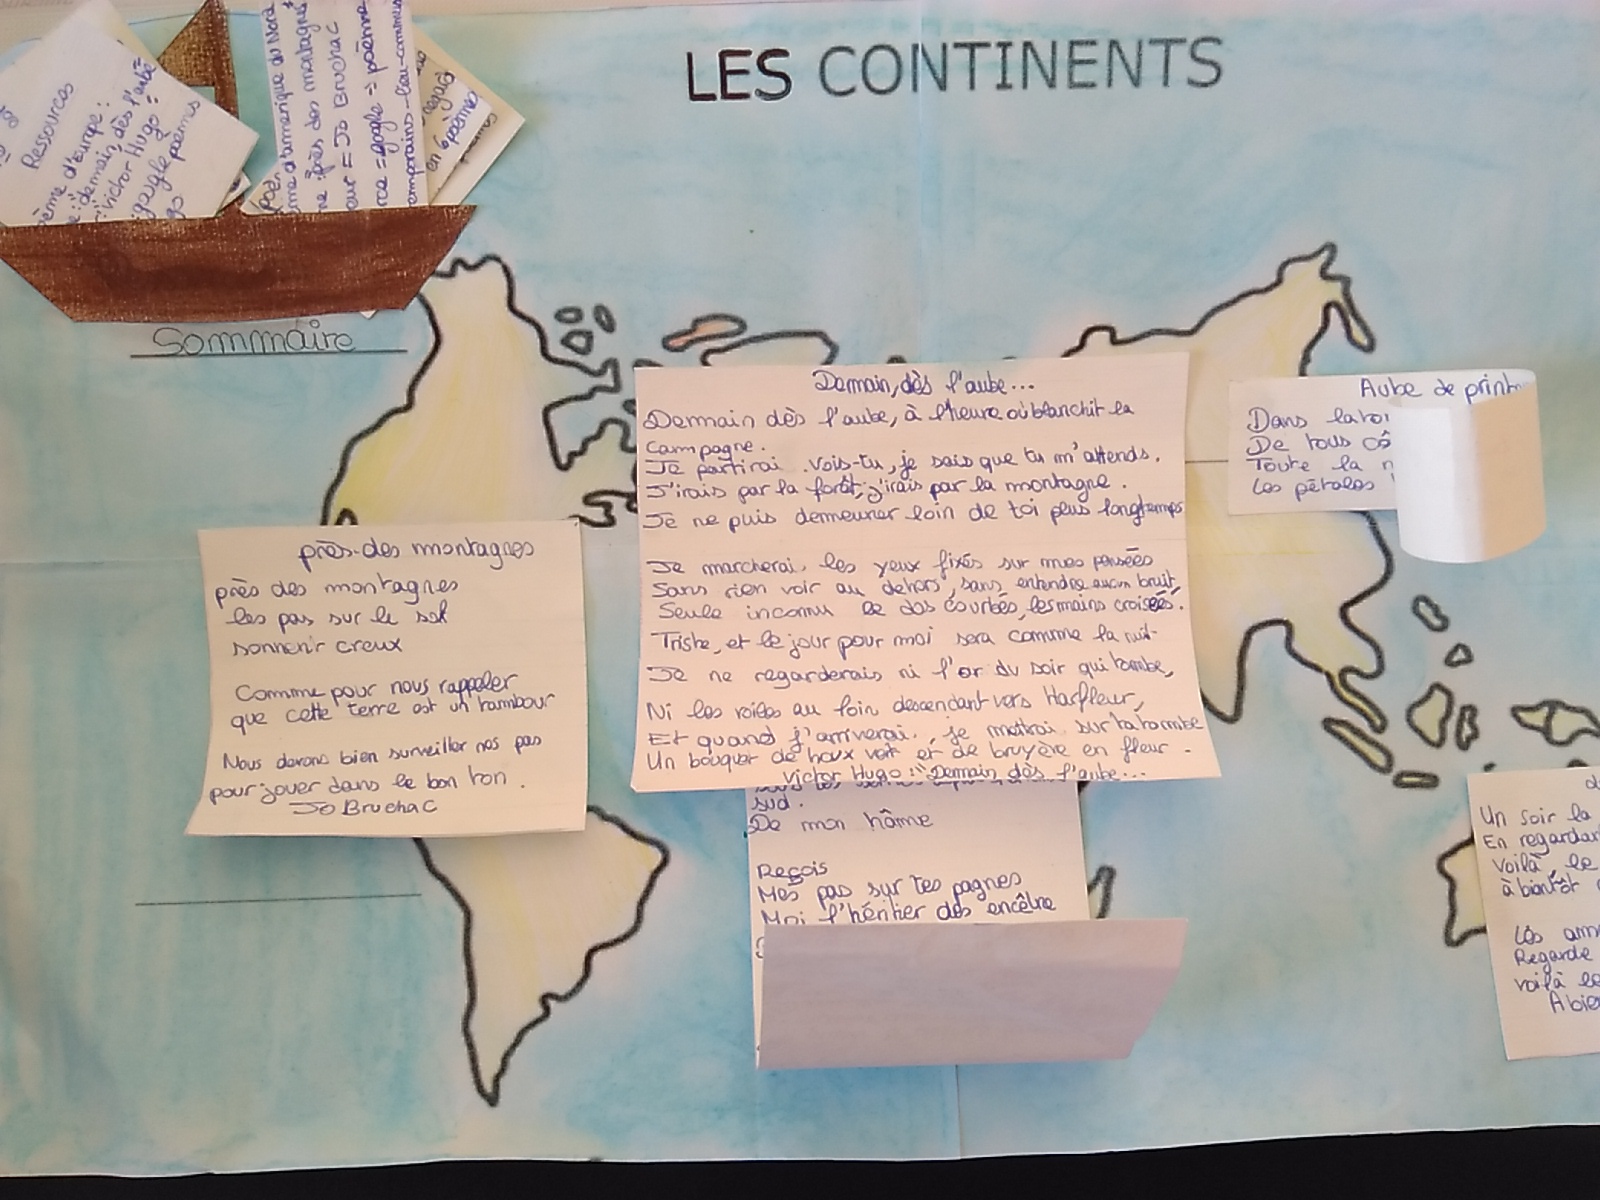 LES CONTINENTS
Ressources
ème d'Europe:
demain, dès l'aube
Victor Hugo
google poèmes
go
poèm
me d'amérique du Nord
ne près des montagnes
our = Jo Bruchac
rce = google => poème
emporains-lieu-commun
regard
en 6 poèmes
Sommaire
près-des montagnes
près des montagnes
les pas sur le sol
sonnent creux
Comme pour nous rappeler
que cette terre est un tambour
Nous devons bien surveiller nos pas
pour jouer dans le bon ton.
Jo Bruchac
Demain, dès l'aube...
Demain dès l'aube, à l'heure où blanchit la
Campagne.
Je partirai. Vois-tu, je sais que tu m'attends.
J'irais par la forêt, j'irais par la montagne.
Je ne puis demeurer loin de toi plus longtemps
Je marcherai, les yeux fixés sur mes pensées
Sans rien voir au dehors, sans entendre aucun bruit,
Seule inconnu le dos courbés, les mains croisées.
Triste, et le jour pour moi sera comme la nuit.
Je ne regarderais ni l'or du soir qui tombe,
Ni les voiles au loin descendant vers Harfleur,
Et quand j'arriverai, je mettrai sur ta tombe
Un bouquet de houx vert et de bruyère en fleur.
Victor Hugo: "Demain, dès l'aube...
sud.
De mon hâme
Reçois
Mes pas sur tes pagnes
Moi l'héritier des encêtre
Aube de print
Dans la
De tous cô
Toute la n
Les pétales
Un soir la
En regardan
Voilà, le
à bientôt
Les am
Regarde
voilà le
A bie